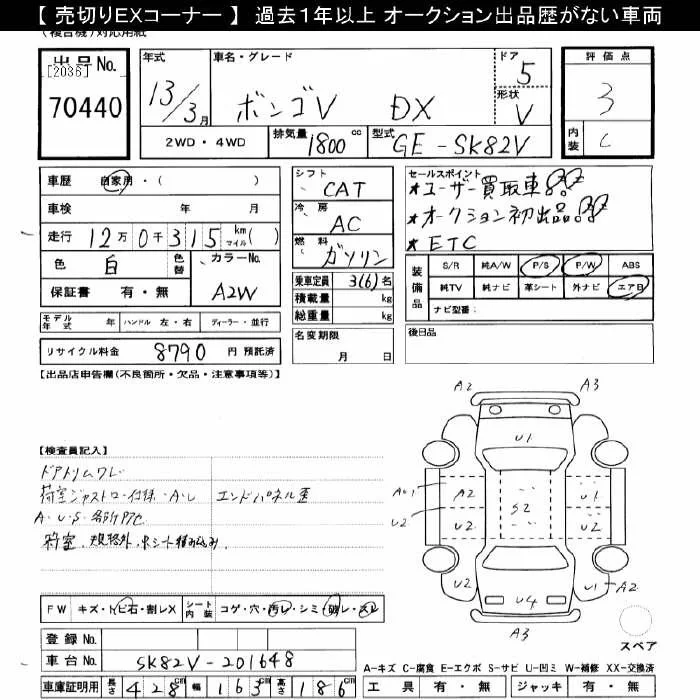 【 売切りEXコーナー 】 過去1年以上 オークション出品歴がない車両
(複合機)対応用紙
出品No.
[2036]
70440
年式
13/3月
車名・グレード
ボンゴV DX
ドア 5
形状 V
2WD・4WD
排気量 1800 cc
型式 GE-SK82V
評価点
3
内装 C
車歴 自家用・( )
車検 年 月
走行 12万0千315 km マイル( )
色 白 色替
カラーNo. A2W
保証書 有・無
モデル年式 年 ハンドル 左・右 ディーラー・並行
リサイクル料金 8790 円 預託済
シフト CAT
冷房 AC
燃料 ガソリン
乗車定員 3(6)名
積載量 kg
総重量 kg
名変期限 月 日
セールスポイント
★ユーザー買取車!!
★オークション初出品!!
★ETC
装備品
S/R 純A/W P/S P/W ABS
純TV 純ナビ 革シート 外ナビ エアB
ナビ型番:
後日品
【出品店申告欄(不良箇所・欠品・注意事項等)】
【検査員記入】
ドアトリムワレ
荷室 A・U エンドパネル歪
A・U・S・各所
荷室、規格外、中シート積み込み、
A2 A3
U1
AU1 A2 U1
U2 S2 U2 U2
U2 U4 U1 A2
A3
スペア
FW キズ・トビ石・割レX
シート内装 コゲ・穴・汚レ・シミ・破レ・スレ
登録No.
車台No. SK82V-201648
車庫証明用 長さ 428cm 幅 163cm 高さ 186cm
A-キズ C-腐食 E-エクボ S-サビ U-凹ミ W-補修 XX-交換済
工具 有・無 ジャッキ 有・無